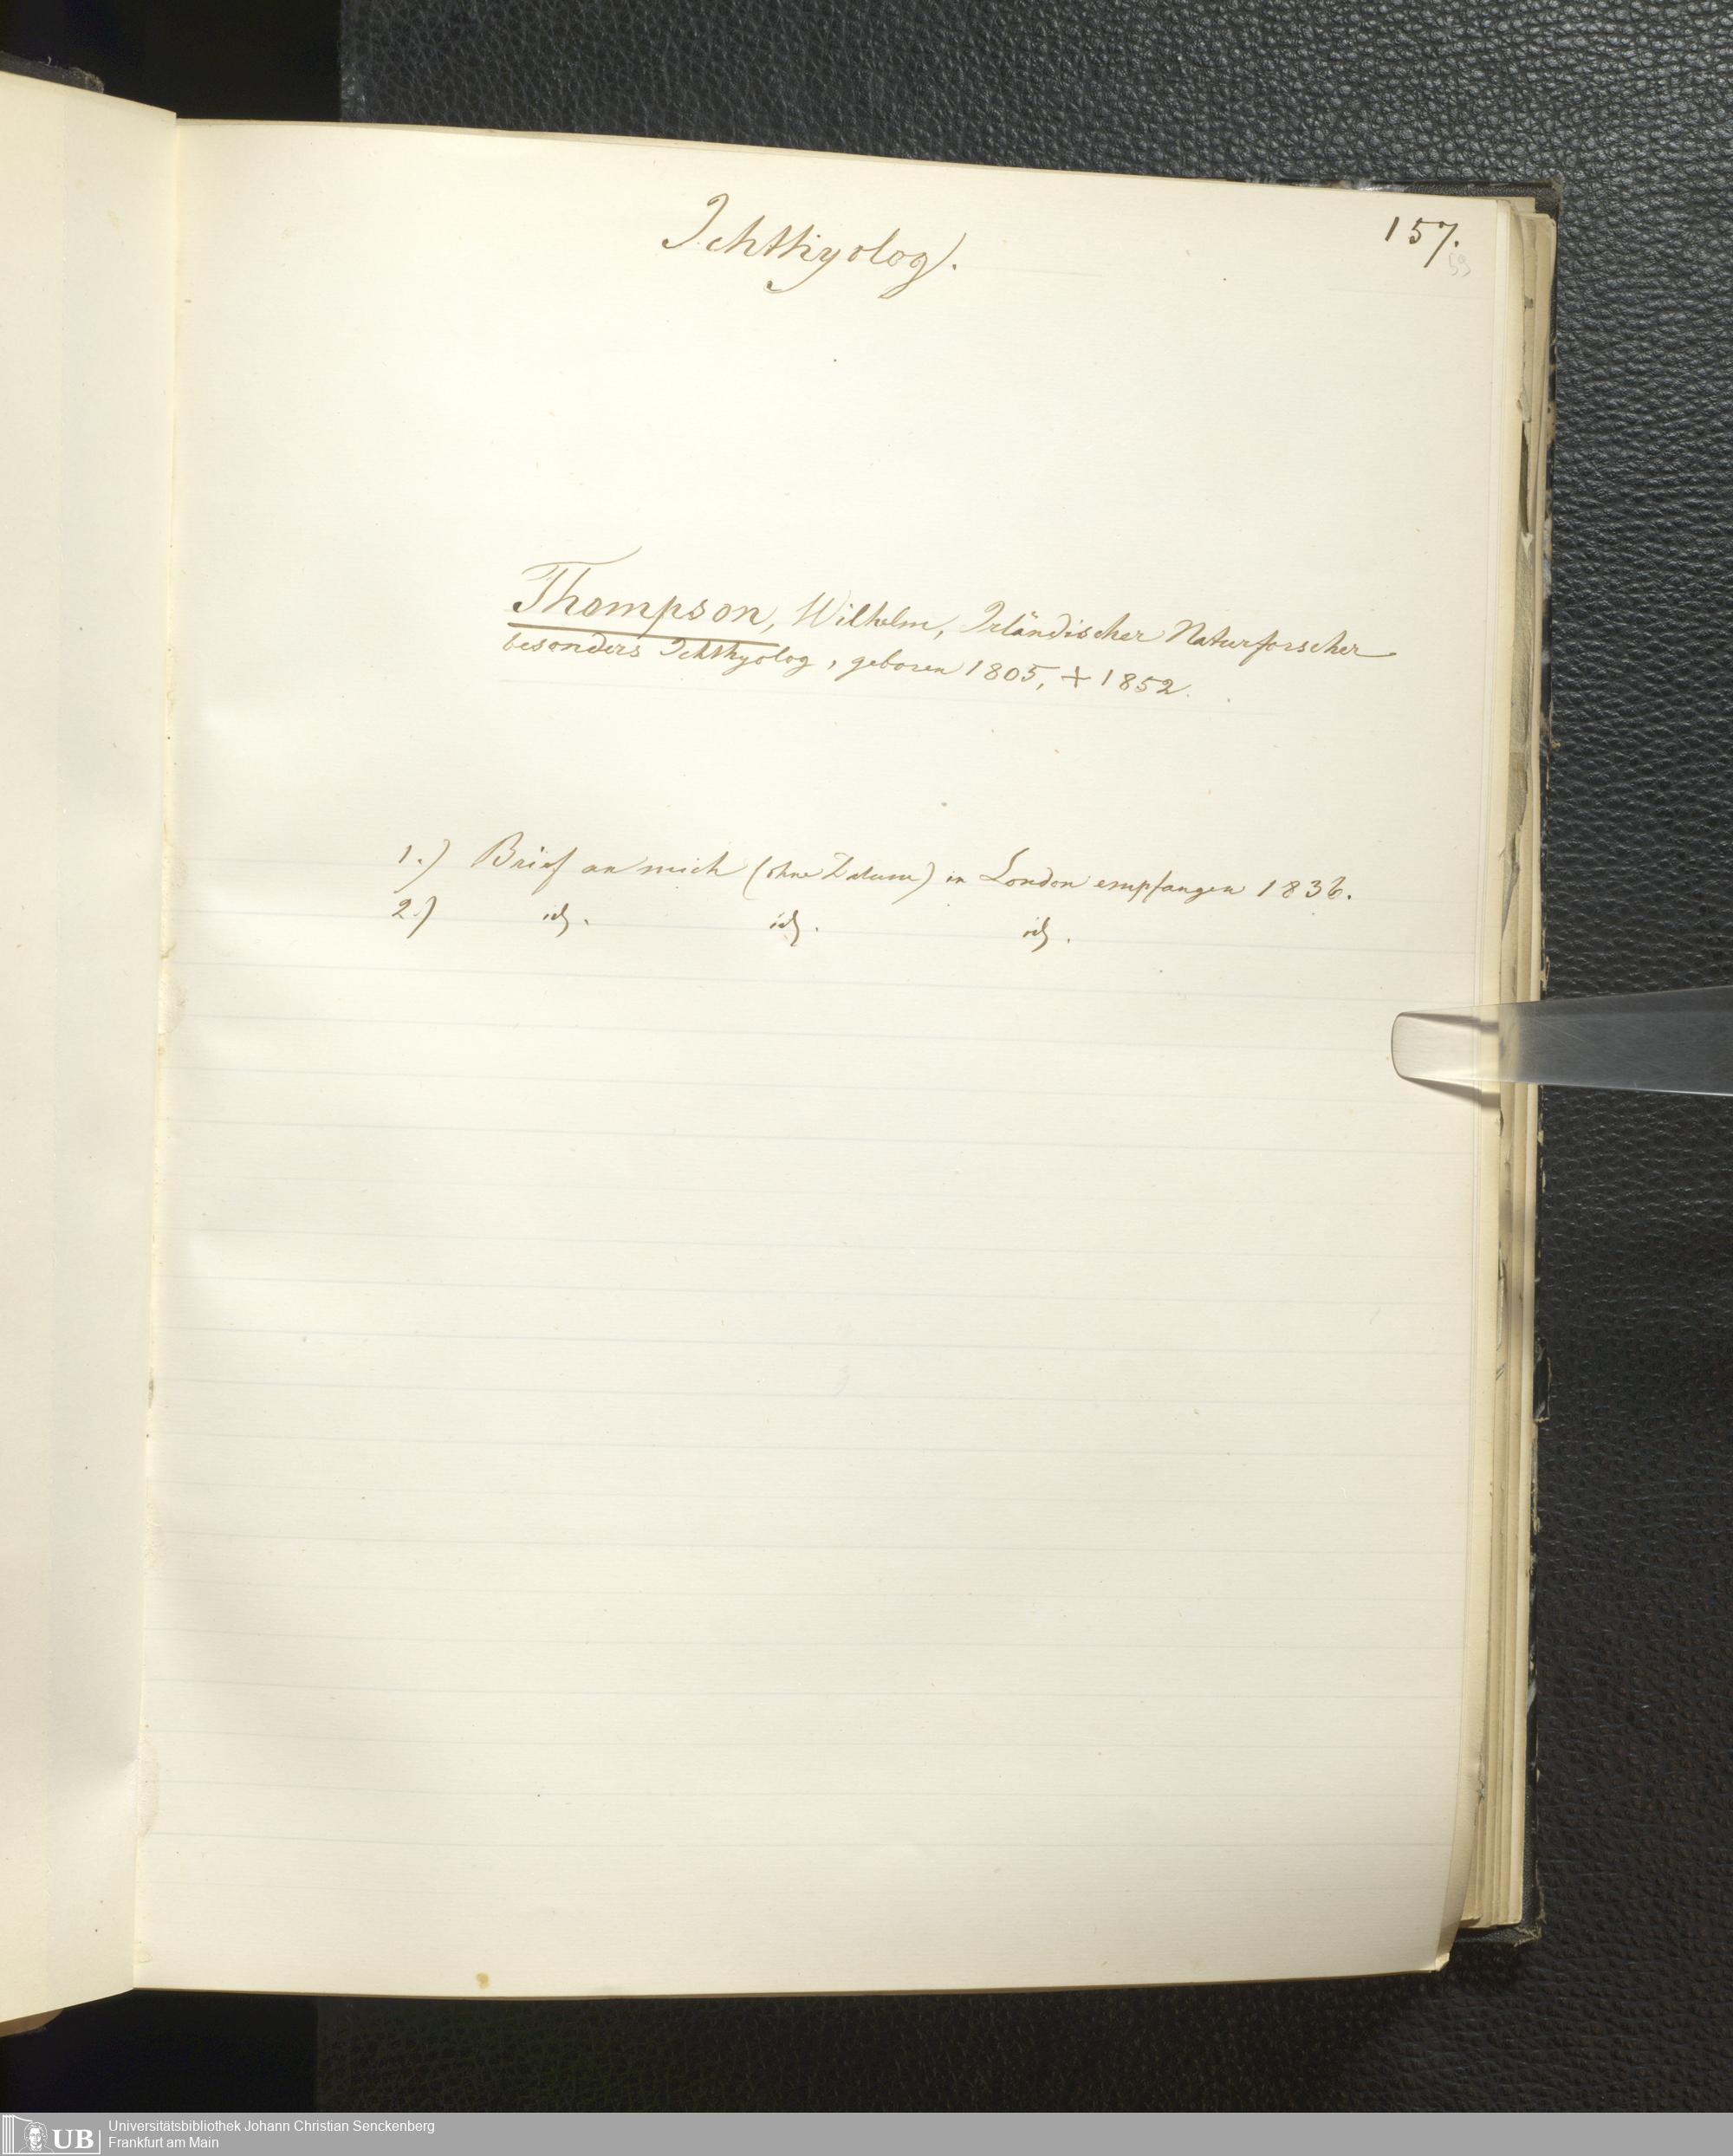 Ichthyolog.
157.
59
Thompson, Wilhelm, Irländischer Naturforscher
besonders Ichthyolog, geboren 1805, + 1852.
1.) Brief an mich (ohne Datum) in London empfangen 1836.
2.) id. id. id.
UB
Universitätsbibliothek Johann Christian Senckenberg
Frankfurt am Main